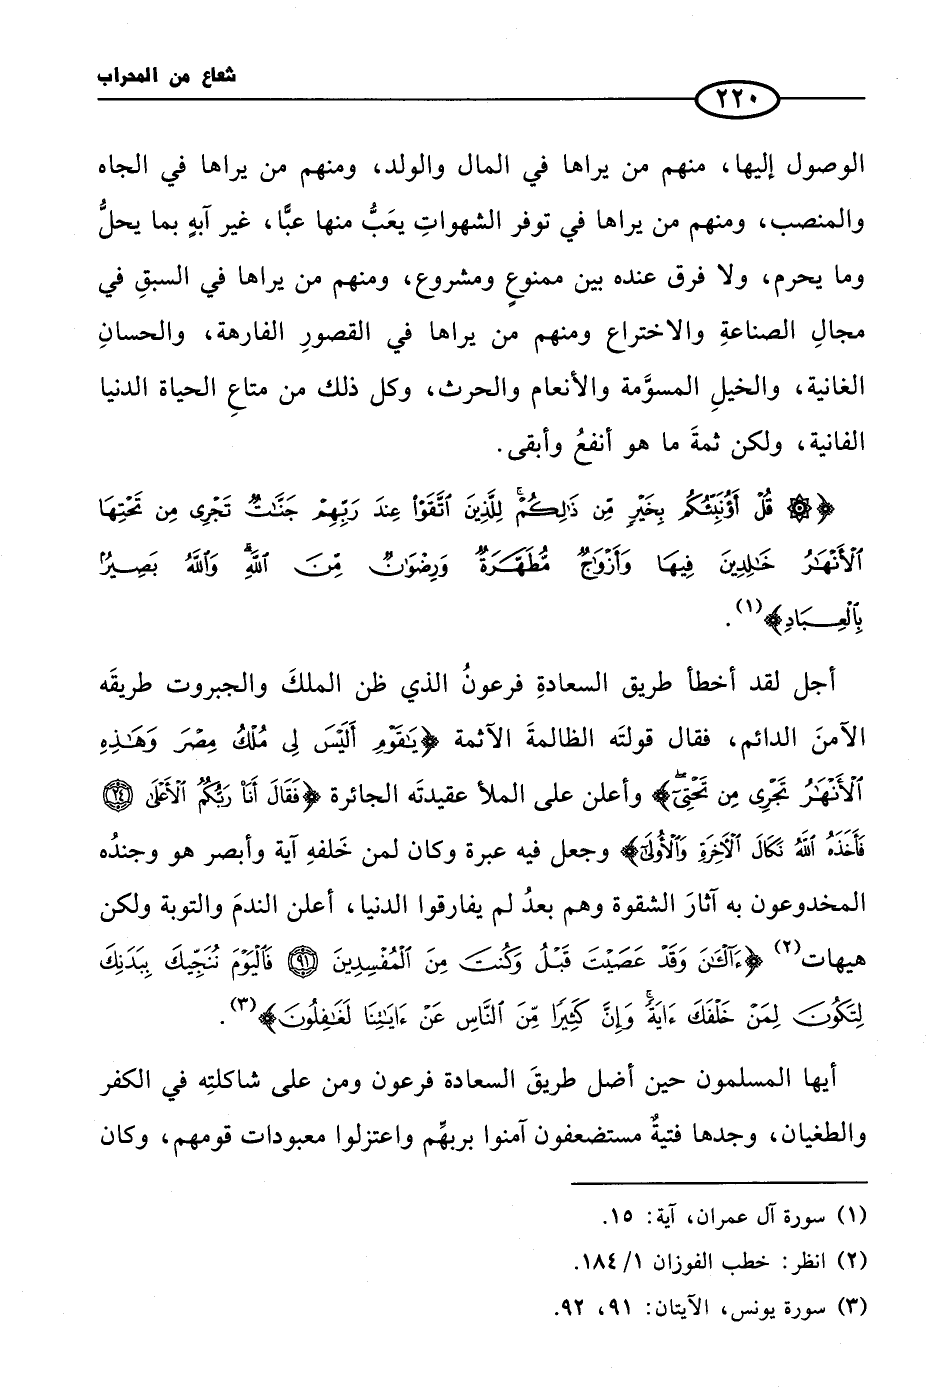 شعاع من المحراب
٢٢٠
الوصول إليها، منهم من يراها في المال والولد، ومنهم من يراها في الجاه
والمنصب، ومنهم من يراها في توفر الشهواتِ يعَبُّ منها عبًّا، غير آبهٍ بما يحلُّ
وما يحرم، ولا فرق عنده بين ممنوعٍ ومشروع، ومنهم من يراها في السبقِ في
مجالِ الصناعةِ والاختراع ومنهم من يراها في القصورِ الفارهة، والحسانِ
الغانية، والخيلِ المسوَّمة والأنعام والحرث، وكل ذلك من متاعِ الحياة الدنيا
الفانية، ولكن ثمةَ ما هو أنفعُ وأبقى.
﴿۞ قُلۡ أَؤُنَبِّئُكُم بِخَيۡرٖ مِّن ذَٰلِكُمۡۖ لِلَّذِينَ ٱتَّقَوۡاْ عِندَ رَبِّهِمۡ جَنَّٰتٞ تَجۡرِي مِن تَحۡتِهَا
ٱلۡأَنۡهَٰرُ خَٰلِدِينَ فِيهَا وَأَزۡوَٰجٞ مُّطَهَّرَةٞ وَرِضۡوَٰنٞ مِّنَ ٱللَّهِۗ وَٱللَّهُ بَصِيرُۢ
بِٱلۡعِبَادِ﴾(١).
أجل لقد أخطأ طريق السعادةِ فرعونُ الذي ظن الملكَ والجبروت طريقَه
الآمنَ الدائم، فقال قولتَه الظالمةَ الآثمة ﴿يَٰقَوۡمِ أَلَيۡسَ لِي مُلۡكُ مِصۡرَ وَهَٰذِهِ
ٱلۡأَنۡهَٰرُ تَجۡرِي مِن تَحۡتِيٓۚ﴾ وأعلن على الملأ عقيدتَه الجائرة ﴿فَقَالَ أَنَا۠ رَبُّكُمُ ٱلۡأَعۡلَىٰ ٢٤
فَأَخَذَهُ ٱللَّهُ نَكَالَ ٱلۡأٓخِرَةِ وَٱلۡأُولَىٰٓ﴾ وجعل فيه عبرة وكان لمن خَلفهِ آية وأبصر هو وجندُه
المخدوعون به آثارَ الشقوة وهم بعدُ لم يفارقوا الدنيا، أعلن الندمَ والتوبة ولكن
هيهات(٢) ﴿ءَآلۡـَٰٔنَ وَقَدۡ عَصَيۡتَ قَبۡلُ وَكُنتَ مِنَ ٱلۡمُفۡسِدِينَ ٩١ فَٱلۡيَوۡمَ نُنَجِّيكَ بِبَدَنِكَ
لِتَكُونَ لِمَنۡ خَلۡفَكَ ءَايَةٗۚ وَإِنَّ كَثِيرٗا مِّنَ ٱلنَّاسِ عَنۡ ءَايَٰتِنَا لَغَٰفِلُونَ﴾(٣).
أيها المسلمون حين أضل طريقَ السعادة فرعون ومن على شاكلتِه في الكفر
والطغيان، وجدها فتيةٌ مستضعفون آمنوا بربهِّم واعتزلوا معبودات قومهم، وكان
(١) سورة آل عمران، آية: ١٥.
(٢) انظر: خطب الفوزان ١/ ١٨٤.
(٣) سورة يونس، الآيتان: ٩١، ٩٢.